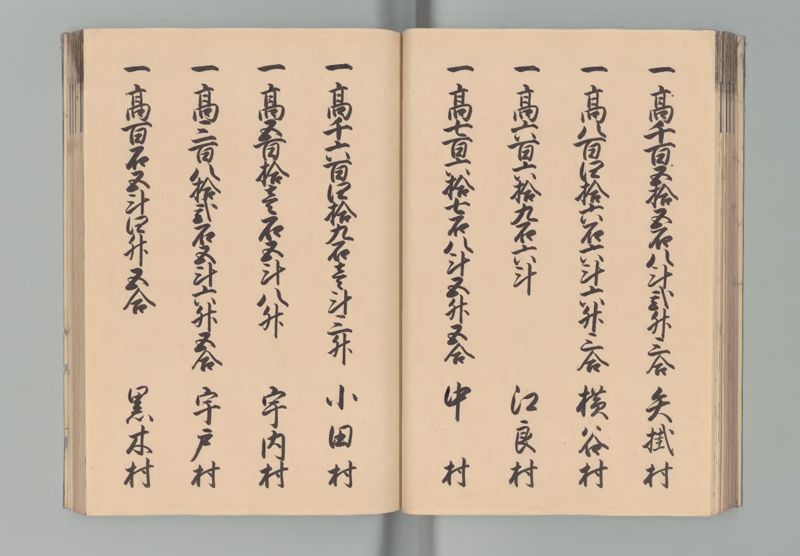 一高千百五拾五石八斗弐升三合 矢掛村
一高八百四拾六石六斗六升三合 横谷村
一高六百六拾九石六斗 江良村
一高七百六拾七石八斗五升五合 中村
一高千六百四拾九石壱斗三升 小田村
一高五百拾壱石五斗八升 宇内村
一高三百八拾弐石五斗六升五合 宇戸村
一高百石五斗四升五合 黒木村